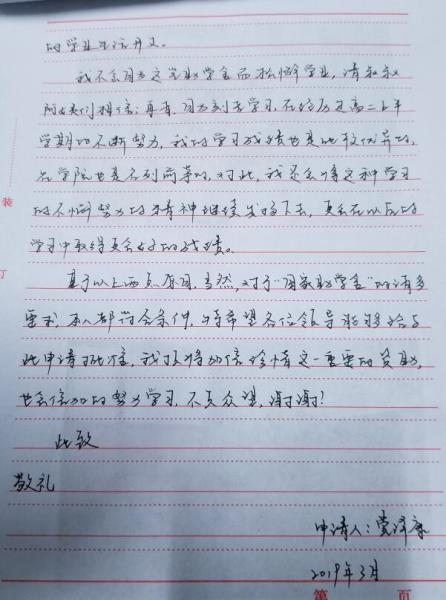 的学业生活开支。
我不会因为这笔助学金而松懈学业,请叔叔
阿姨们相信;再者,因为刻苦学习,在经历过高二上半
学期的不断努力,我的学习成绩也是比较优异的,
在学院也是名列前茅的,对此,我还会将这种学习
的不懈努力的精神继续发扬下去,更会在以后的
学习中取得更会好的成绩。
基于以上两点原因,当然,对于“国家助学金”的诸多
要求,本人都符合条件,特希望各位领导能够给与
此申请批准,我顶将加倍珍惜这一重要的资助,
也会倍加的努力学习,不负众望,谢谢!
此致
敬礼
申请人:
2019年3月
装
订
第 页